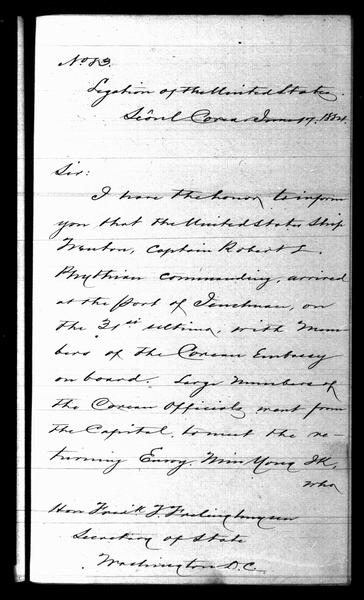 No 83.
Legation of the United States.
Sëoul Corea June 17. 1884.
Sir:
I have the honor, to inform
you that the United States Ship
Trenton, Captain Robert L.
Phythian commanding, arrived
at the Port of Jenchuan, on
the 31st ultimo, with Mem-
bers of the Corean Embassy
on board. Large numbers of
the Corean Officials, went from
the Capital, to meet the re-
turning Envoy, Min Yong Ik,
who
Hon Fredk T. Frelinghuysen
Secretary of State
Washington D.C.